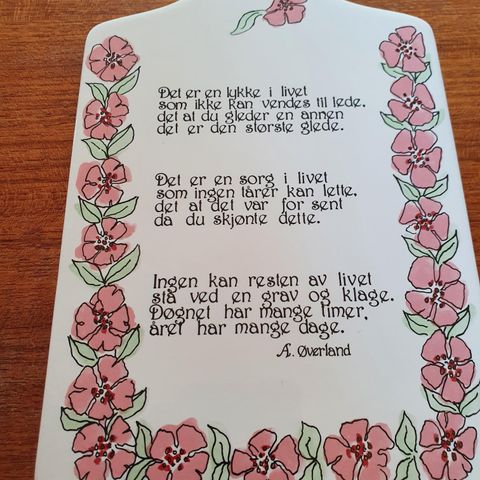 Det er en lykke i livet
som ikke kan vendes til lede,
det at du gleder en annen
det er den største glede.
Det er en sorg i livet
som ingen tårer kan lette,
det at det var for sent
da du skjønte dette.
Ingen kan resten av livet
stå ved en grav og klage.
Døgnet har mange timer,
året har mange dage.
Æ. Øverland